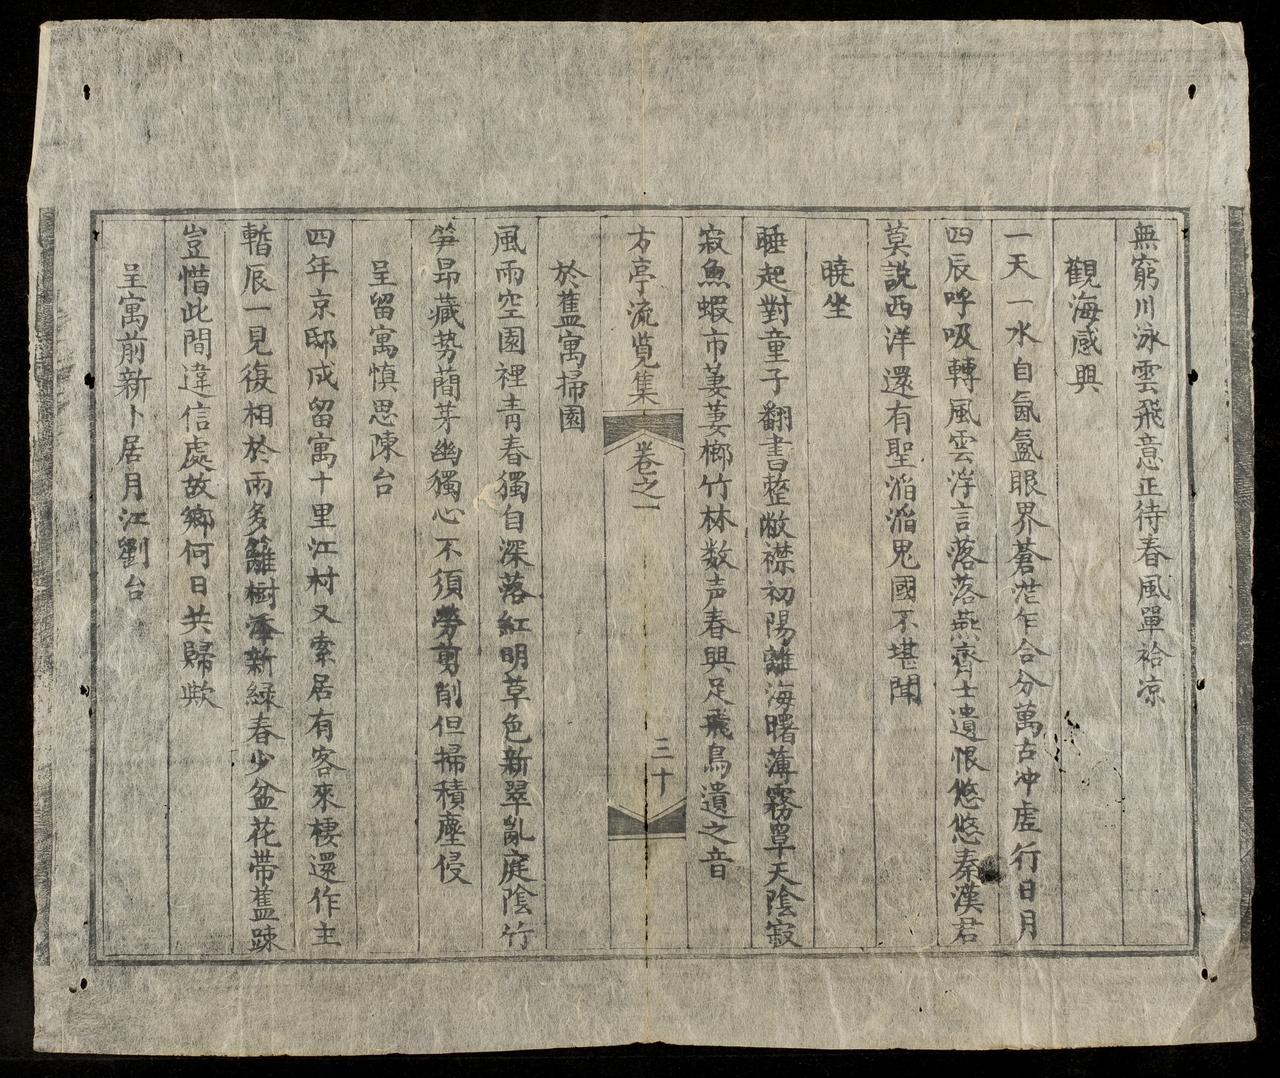 無窮川泳雲飛意正待春風單袷凉
觀海感興
一天一水自氤氳眼界蒼茫乍合分萬古冲虛行日月
四辰呼吸轉風雲浮言落落燕齊士遺恨悠悠秦漢君
莫説西洋還有聖滔滔鬼國不堪聞
曉坐
睡起對童子翻書整敝襟初陽離海曙薄霧罩天陰寂
寂魚蝦市萋萋榔竹林数声春興足飛鳥遺之音
方亭流覧集
卷之一
三十
於舊寓掃園
風雨空園裡青春獨自深落紅明草色新翠亂庭陰竹
笋昂藏勢蘭芽幽獨心不須勞剪削但掃積塵侵
呈留寓慎思陳台
四年京邸成留寓十里江村又索居有客來棲還作主
暫辰一見復相於雨多籬樹添新綠春少盆花帶舊踈
豈惜此間違信處故鄉何日共歸歟
呈寓前新卜居月江劉台